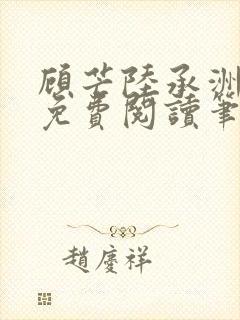 顾芒陸承洲
免費閱讀筆
趙慶祥